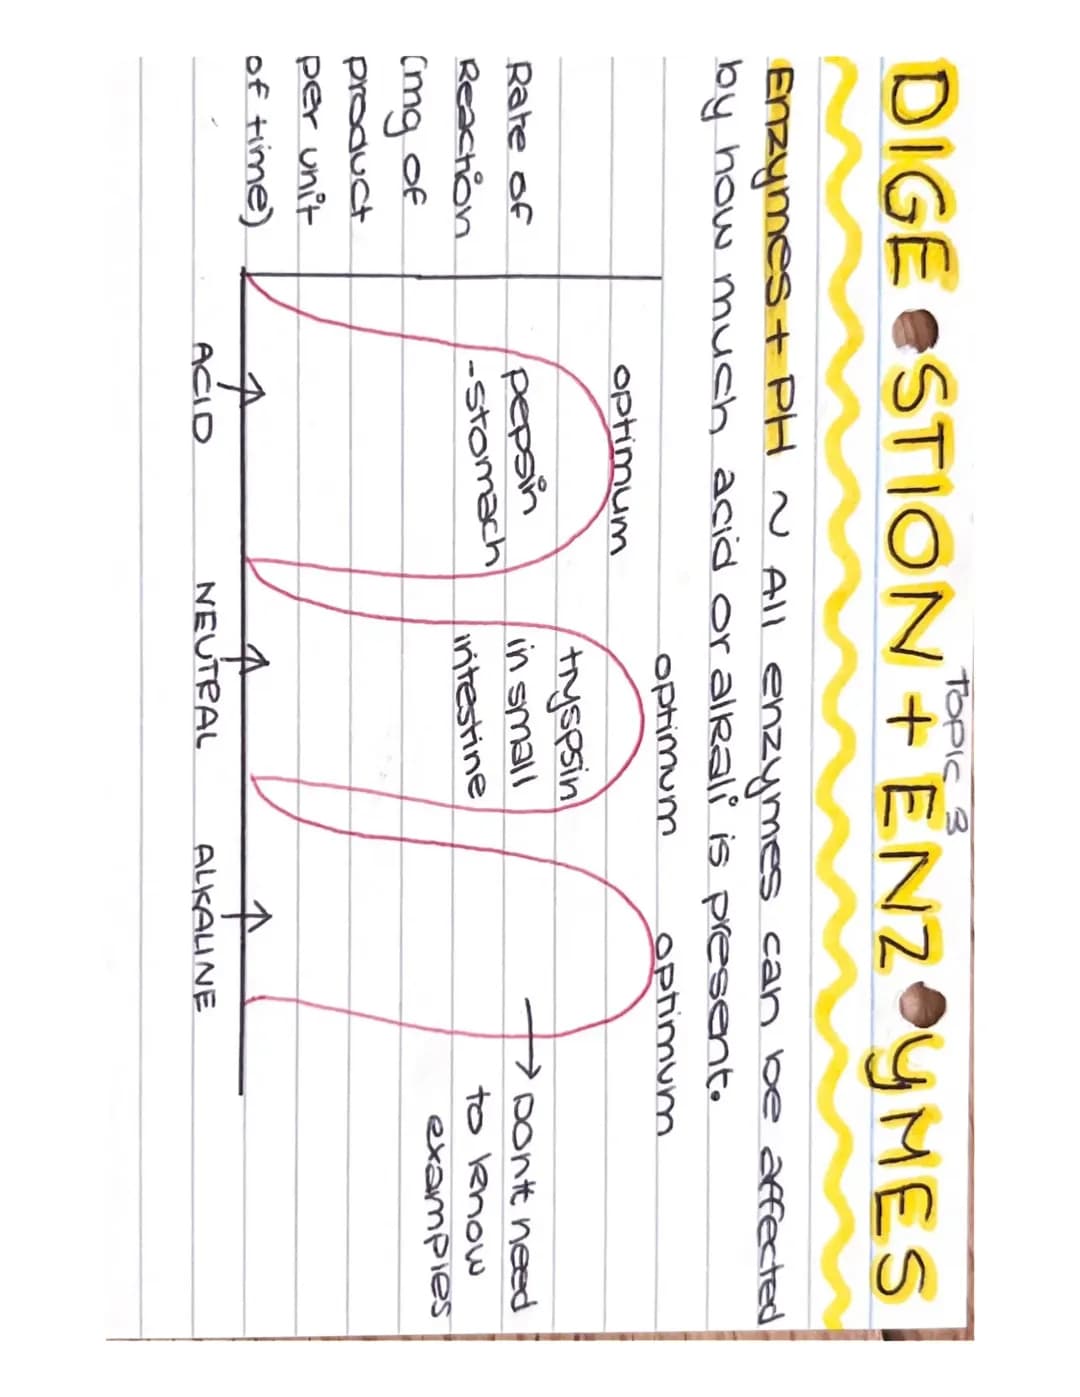 Topic 3
DIGE STION + ENZ YMES
Enzymes + PH ~ All enzymes can be affected
by how much acid or alkali is present.
optimum
optimum
optimum
Rate of
Reaction
(mg of
product
per unit
of time)
pepsin
-stomach
tryspsin
in small
intestine
→ Don't need
to know
examples
ACID
NEUTRAL
ALKALINE